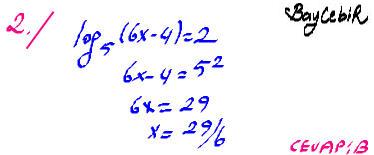 BayCebiR
2./ log₅(6x-4)=2
6x-4=5²
6x=29
x=29/6
CEVAP:B